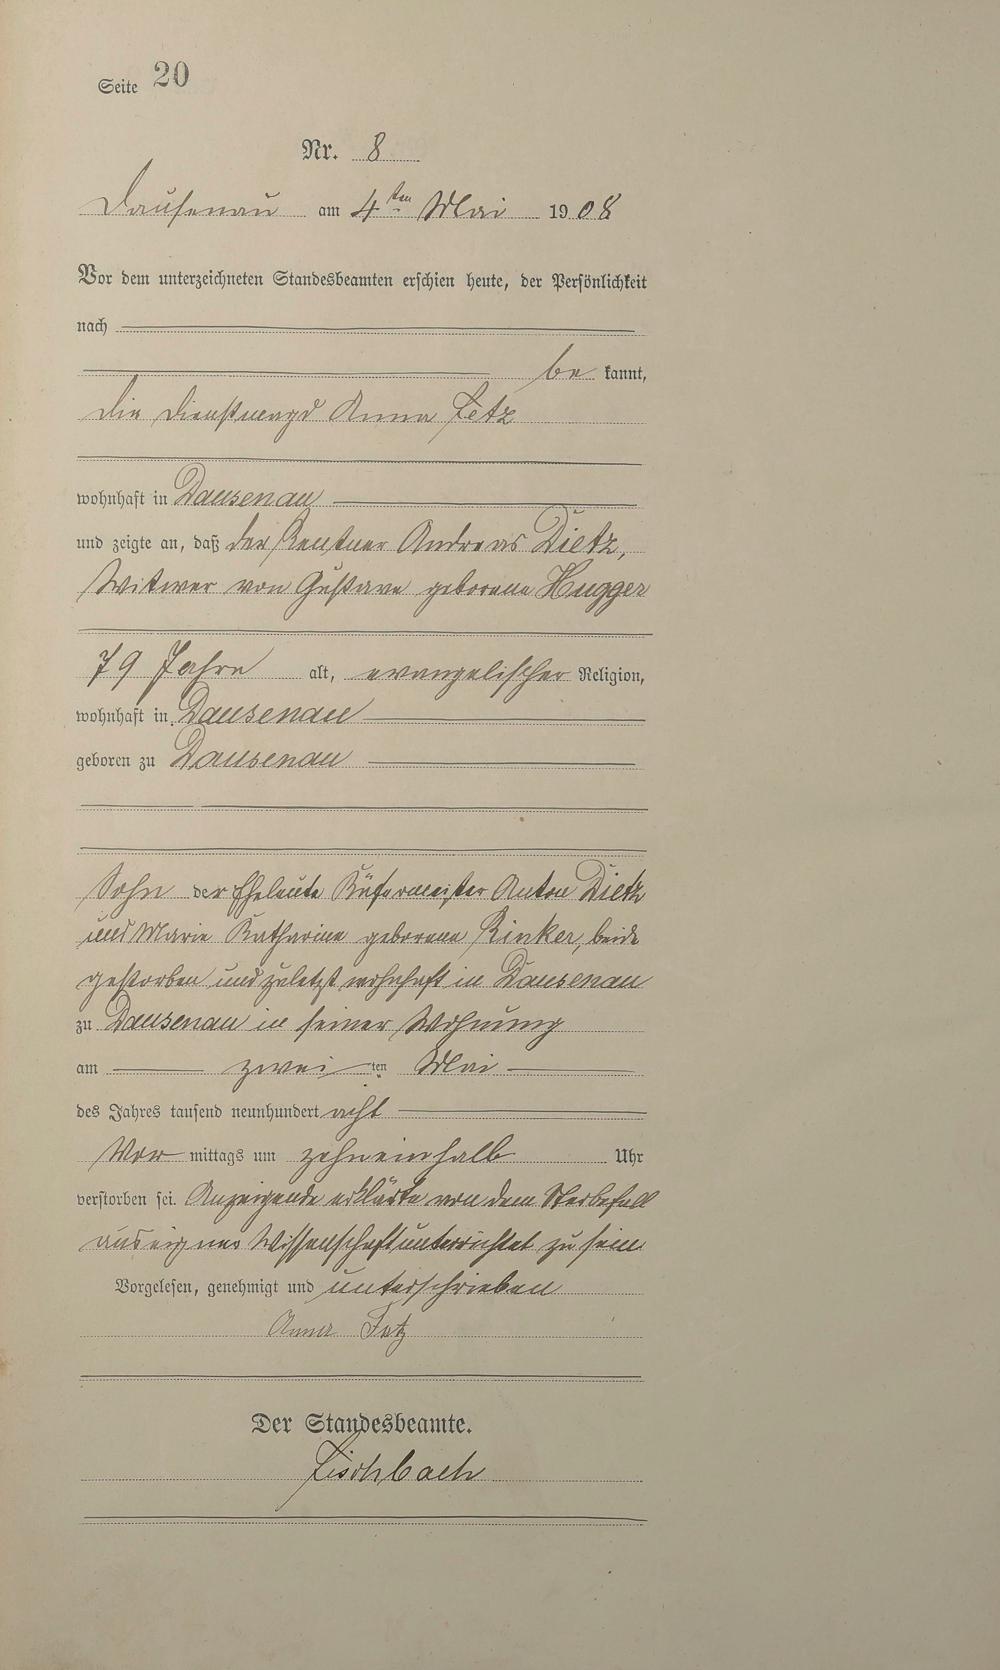 Seite 20
Nr. 8
Dausenau am 4ten Mai 1908
Vor dem unterzeichneten Standesbeamten erschien heute, der Persönlichkeit
nach
be kannt,
die Dienstmagd Anna Fetz
wohnhaft in Dausenau
und zeigte an, daß der Rentner Andreas Dietz,
Witwer von Gustave geborene Hugger
79 Jahre alt, evangelischer Religion,
wohnhaft in Dausenau
geboren zu Dausenau
Sohn der Eheleute Küfermeister Anton Dietz
und Marie Katharine geborene Rinker, beide
gestorben und zuletzt wohnhaft in Dausenau
zu Dausenau in seiner Wohnung
am zwei ten Mai
des Jahres tausend neunhundert acht
Vor mittags um zehneinhalb Uhr
verstorben sei. Anzeigende erklärte von dem Sterbefall
aus eigner Wissenschaft unterrichtet zu sein
Vorgelesen, genehmigt und unterschrieben
Anna Fetz
Der Standesbeamte.
Fischbach